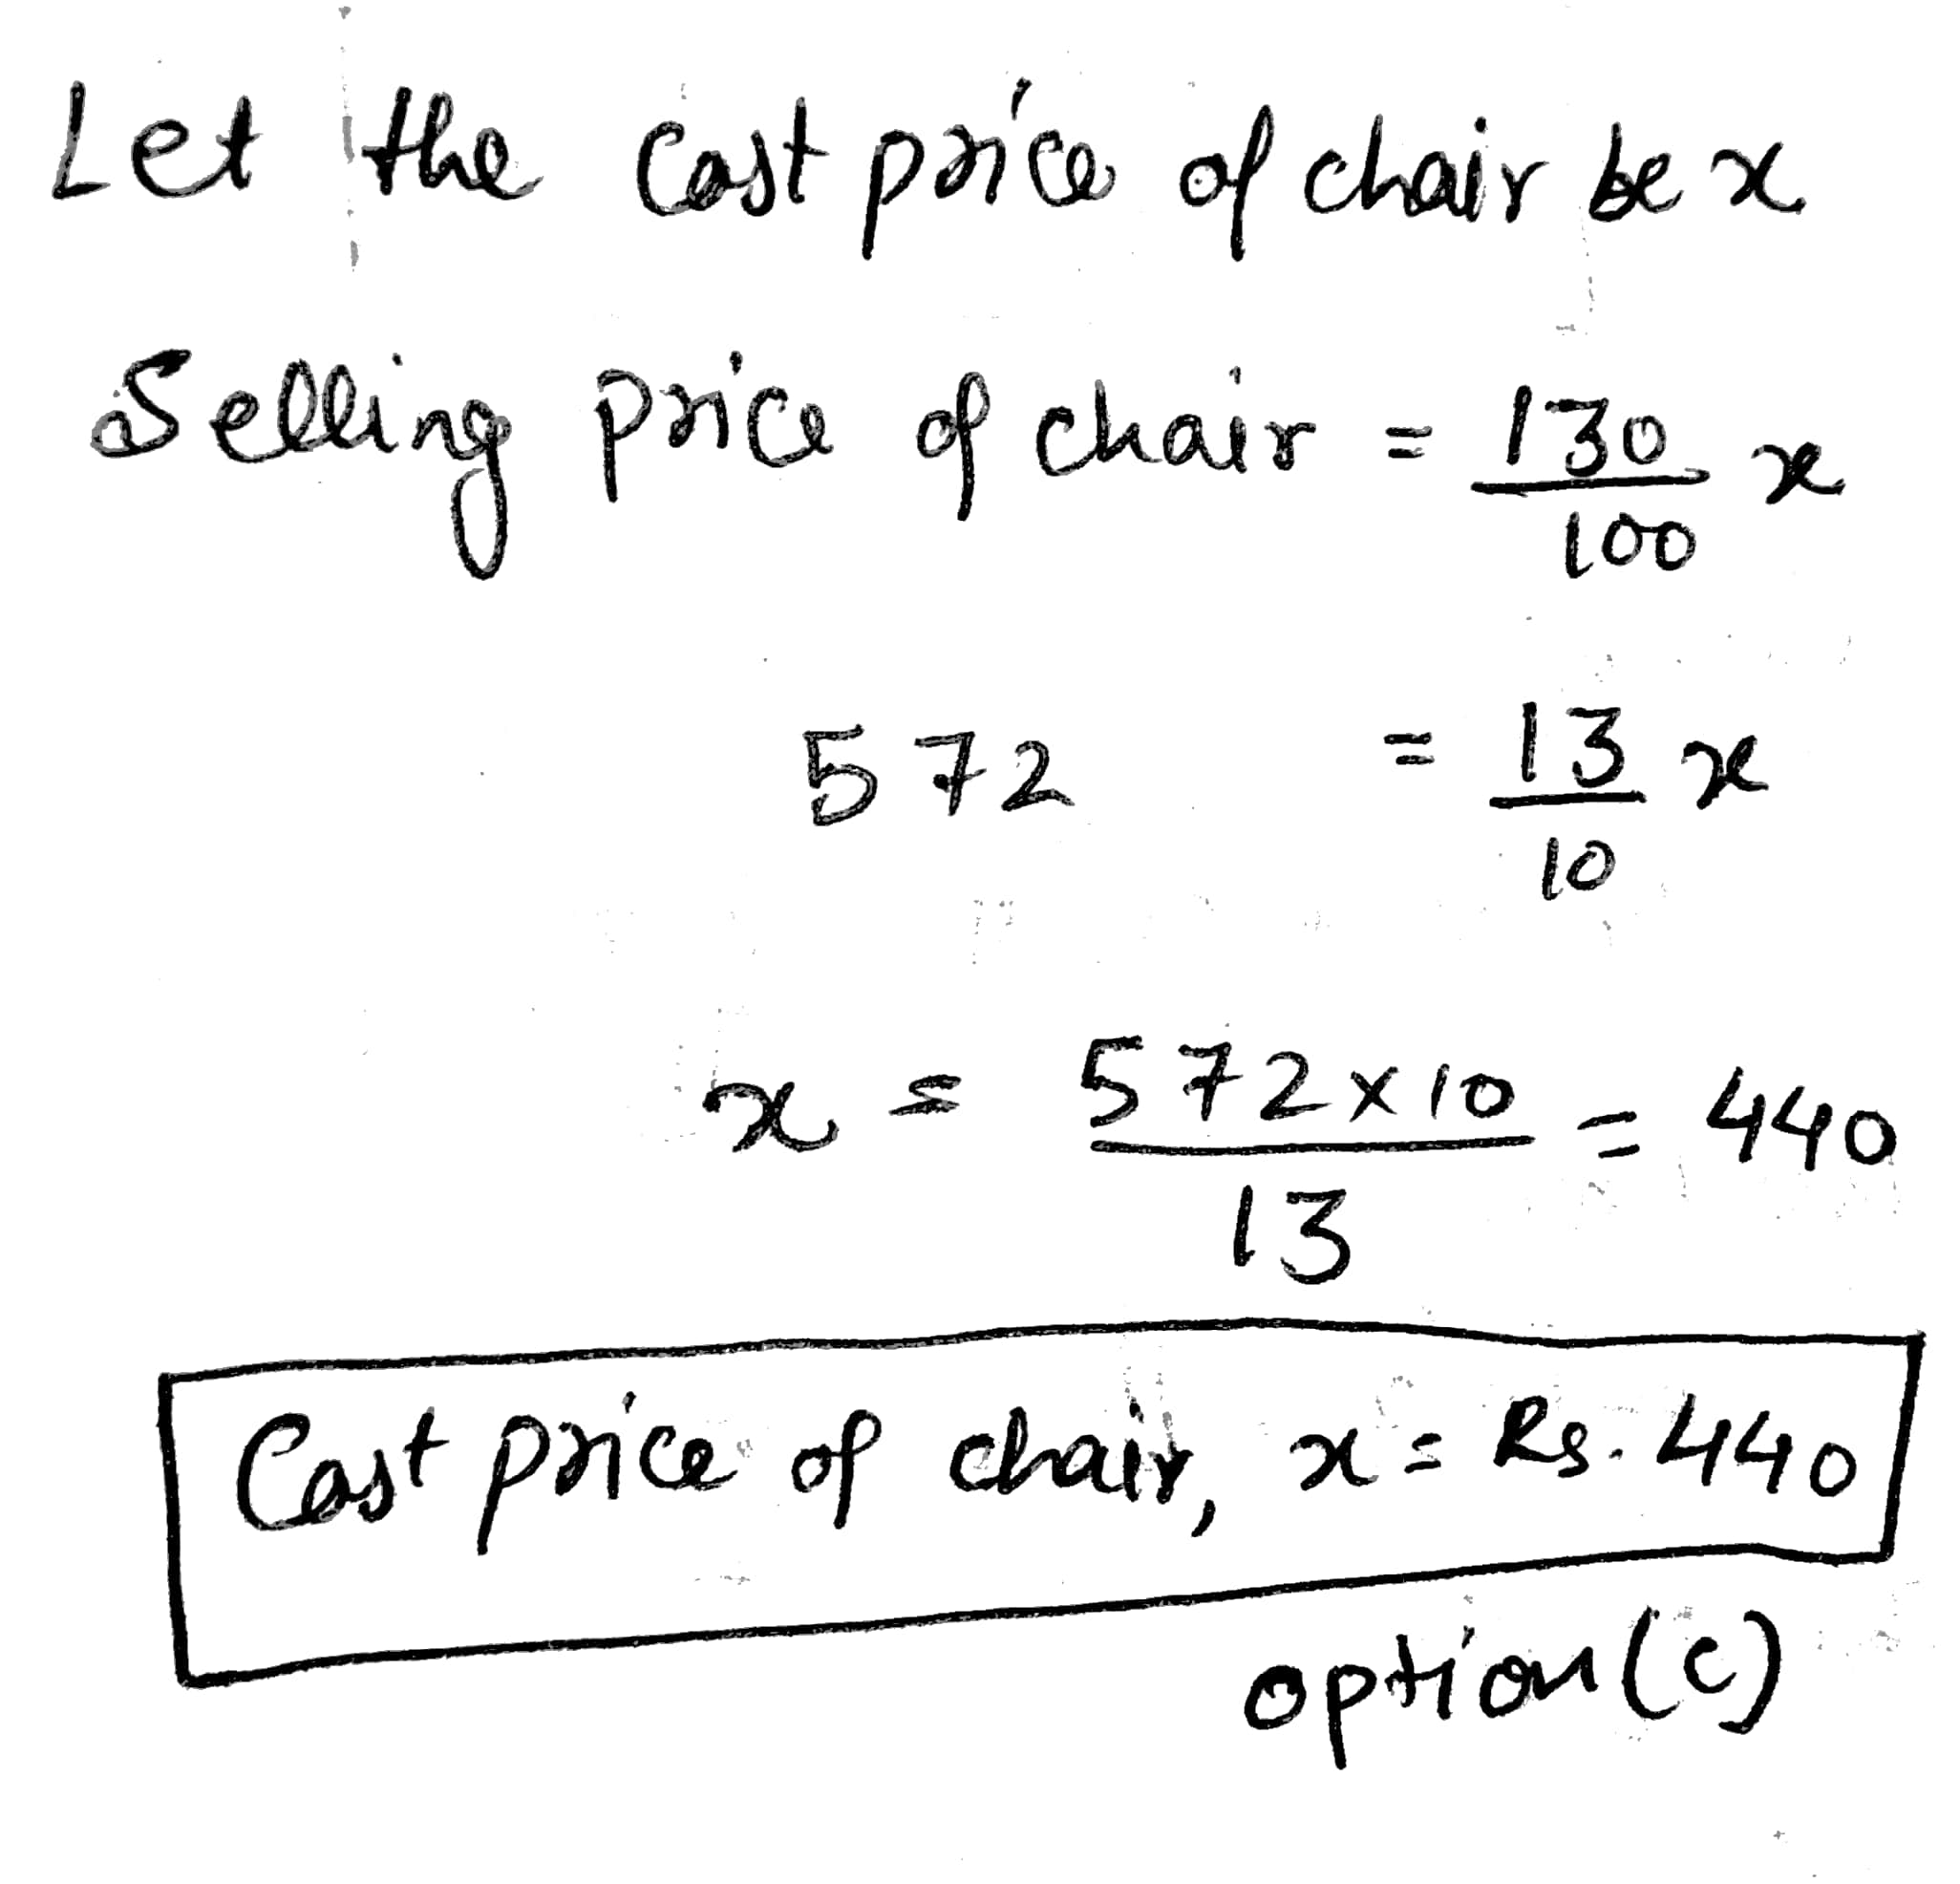 Let the Cost price of chair be x
Selling price of chair = 130/100 x
572 = 13/10 x
x = 572x10/13 = 440
Cost price of chair, x = Rs. 440
option (c)